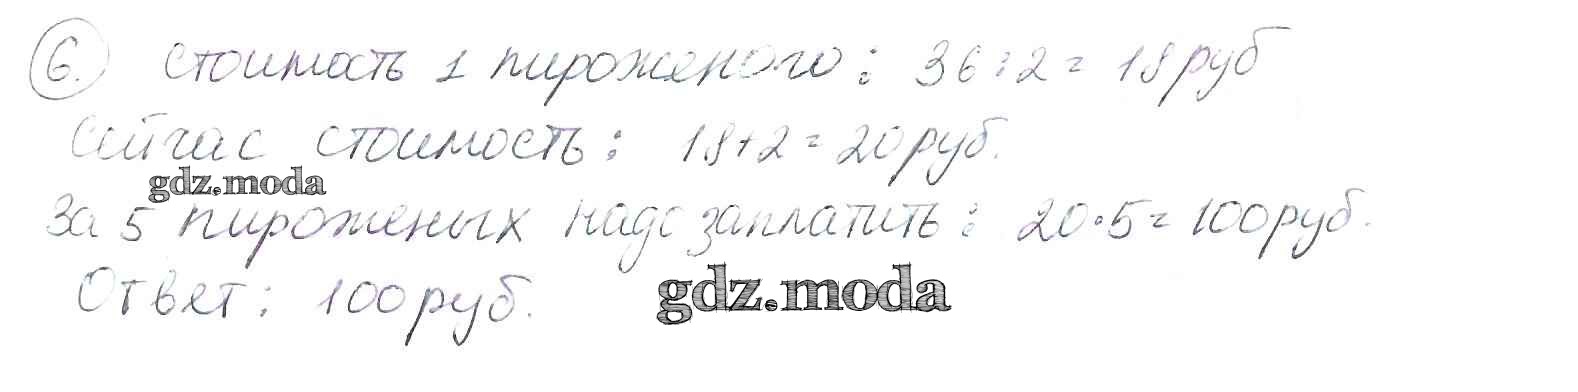 6. Стоимость 1 пироженого: 36:2=18руб
Сейчас стоимость: 18+2=20руб.
gdz.moda
За 5 пироженых надо заплатить: 20·5=100руб.
Ответ: 100руб.
gdz.moda